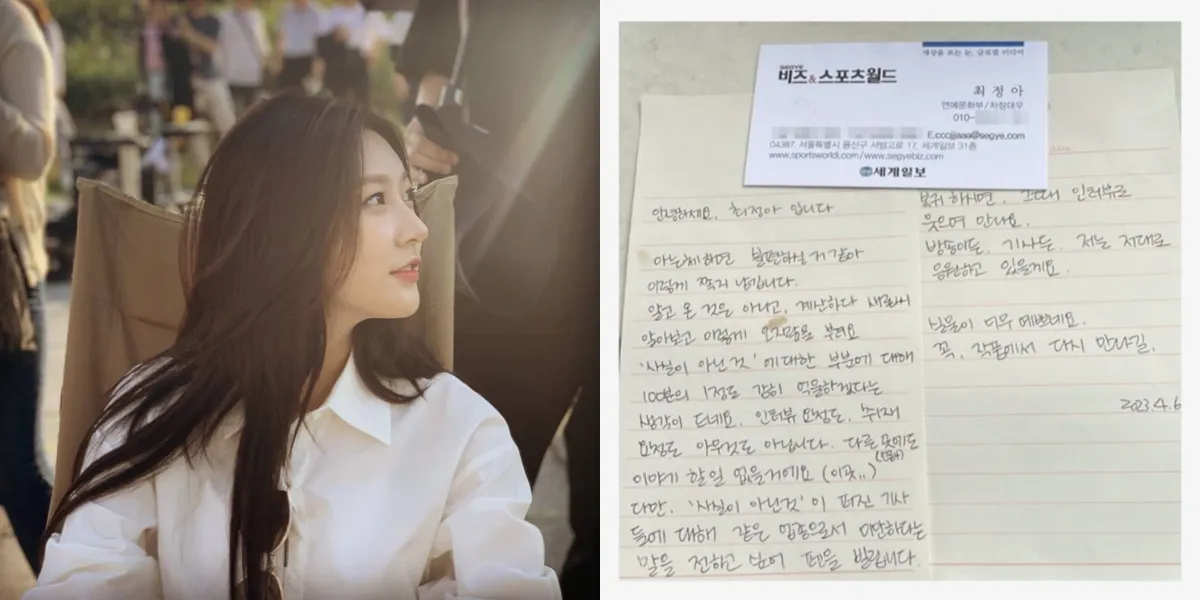 세상을 보는 눈, 글로벌 미디어
SEGYE
비즈&스포츠월드
최 정 아
연예문화부/차장대우
010-
E.cccjjaaa@segye.com
04387. 서울특별시 용산구 서빙고로 17, 세계일보 31층
www.sportsworldi.com/www.segyebiz.com
세계일보
안녕하세요, 최정아 입니다
아는체하면 불편하실거 같아
이렇게 쪽지 남깁니다.
알고 온 것은 아니고, 계산하다 새로이
알아보고 이렇게 오지랖을 부려요
'사실이 아닌 것' 에 대한 부분에 대해
100분의 1정도 감히 억울하겠다는
생각이 드네요. 인터뷰 요청도, 취재
요청도 아무것도 아닙니다. 다른 곳에도
이야기 할 일 없을거에요 (이곳..)
다만, '사실이 아닌것' 이 퍼진 기사
들에 대해 같은 업종으로서 미안하다는
말을 전하고 싶어 펜을 빌립니다.
복귀 하시면, 그때 인터뷰로
웃으며 만나요.
방송이든, 기사든, 저는 저대로
응원하고 있을게요.
실물이 너무 예쁘네요.
꼭, 작품에서 다시 만나길.
2023.4.6